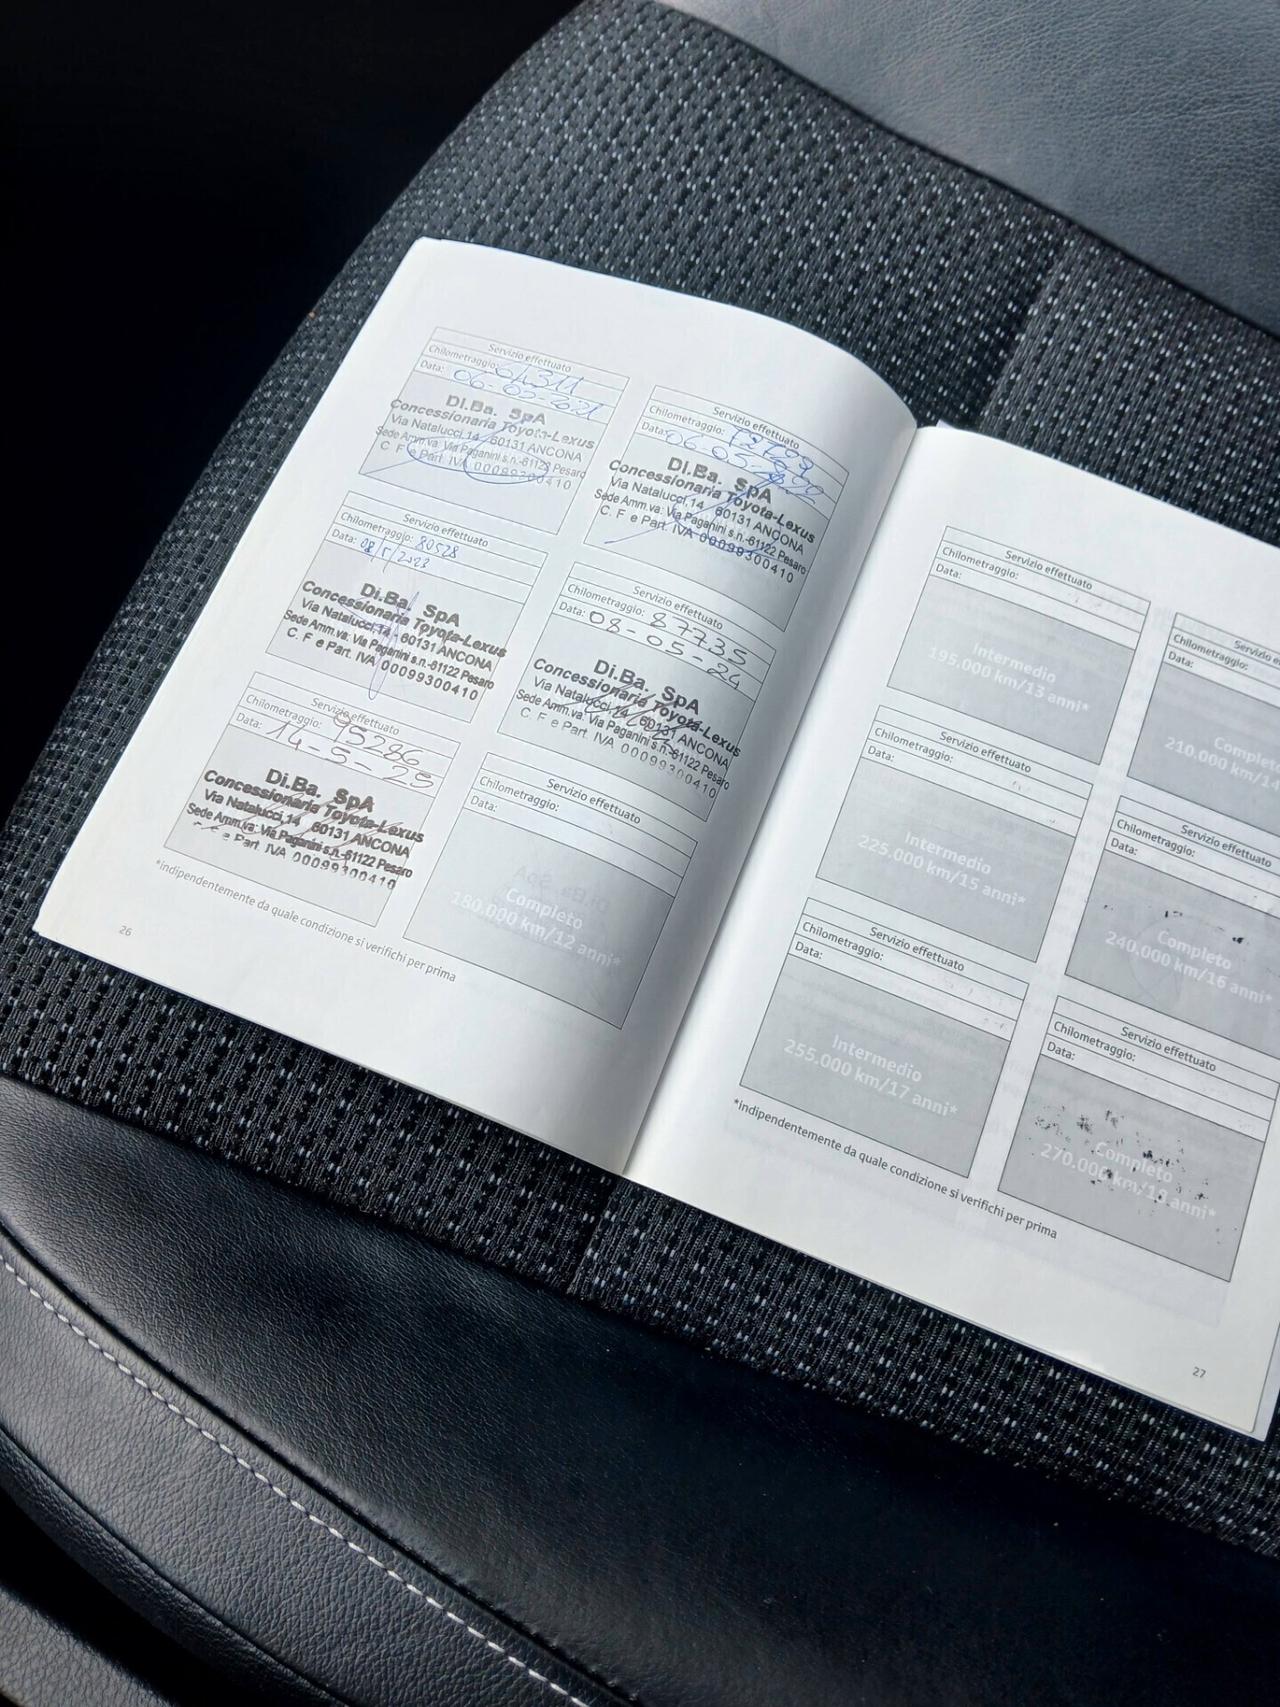 Servizio effettuato
Chilometraggio: 64311
Data: 06-05-2021
Di.Ba. SpA
Concessionaria Toyota-Lexus
Via Natalucci,14 - 60131 ANCONA
Sede Amm.va: Via Paganini s.n.-61122 Pesaro
C. F. e Part. IVA 00099300410
Servizio effettuato
Chilometraggio:
Data: 06-05-
Di.Ba. SpA
Concessionaria Toyota-Lexus
Via Natalucci,14 60131 ANCONA
Sede Amm.va: Via Paganini s.n.-61122 Pesaro
C. F. e Part. IVA 00099300410
Servizio effettuato
Chilometraggio: 80528
Data: 08/5/2023
Di.Ba. SpA
Concessionaria Toyota-Lexus
Via Natalucci,14 - 60131 ANCONA
Sede Amm.va: Via Paganini s.n.-61122 Pesaro
C. F. e Part. IVA 00099300410
Servizio effettuato
Chilometraggio: 87735
Data: 08-05-24
Di.Ba. SpA
Concessionaria Toyota-Lexus
Via Natalucci,14 60131 ANCONA
Sede Amm.va: Via Paganini s.n.-61122 Pesaro
C. F. e Part. IVA 00099300410
Servizio effettuato
Chilometraggio: 95286
Data: 14-5-25
Di.Ba. SpA
Concessionaria Toyota-Lexus
Via Natalucci,14 60131 ANCONA
Sede Amm.va: Via Paganini s.n.-61122 Pesaro
C. F. e Part. IVA 00099300410
Servizio effettuato
Chilometraggio:
Data:
Completo
180.000 km/12 anni*
*Indipendentemente da quale condizione si verifichi per prima
26
Servizio effettuato
Chilometraggio:
Data:
Intermedio
195.000 km/13 anni*
Servizio
Chilometraggio:
Data:
Completo
210.000 km/14
Servizio effettuato
Chilometraggio:
Data:
Intermedio
225.000 km/15 anni*
Servizio effettuato
Chilometraggio:
Data:
Completo
240.000 km/16 anni*
Servizio effettuato
Chilometraggio:
Data:
Intermedio
255.000 km/17 anni*
Servizio effettuato
Chilometraggio:
Data:
Completo
270.000 km/18 anni*
*Indipendentemente da quale condizione si verifichi per prima
27